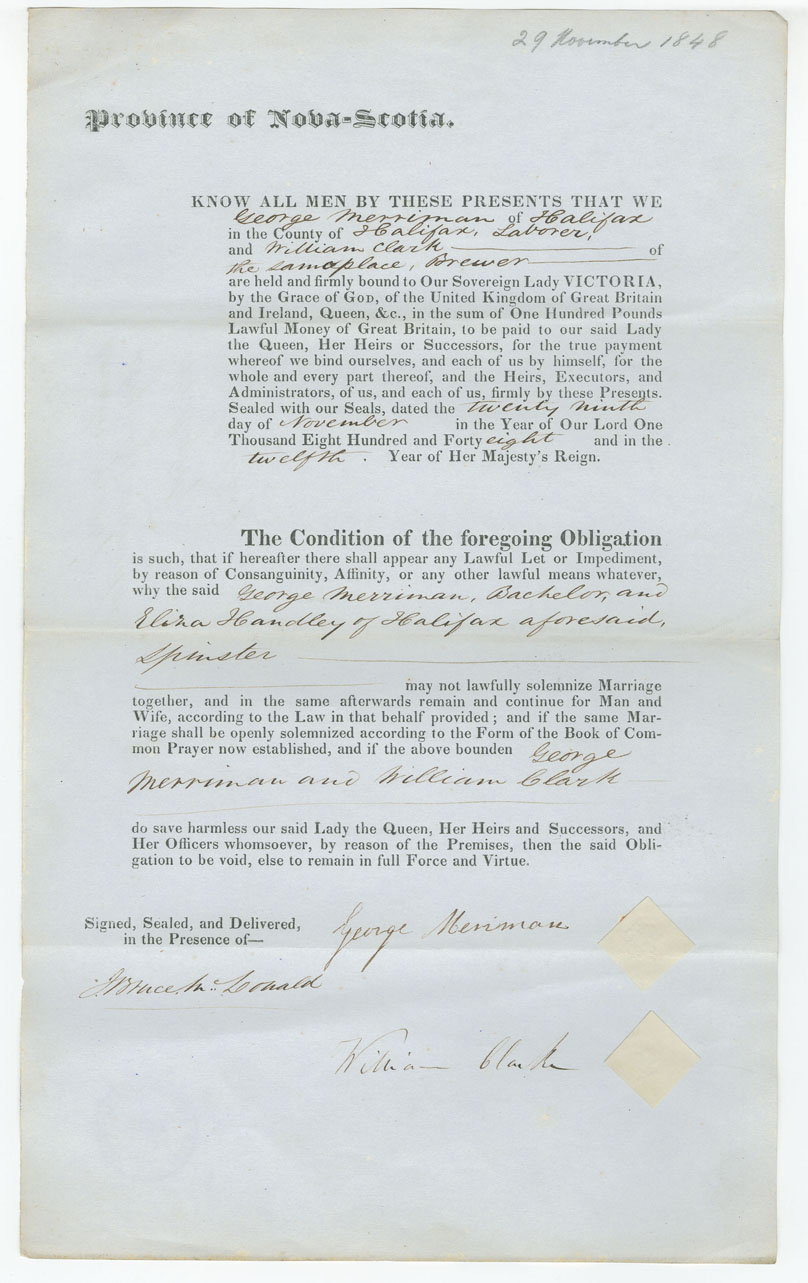 29 November 1848
Province of Nova-Scotia.
KNOW ALL MEN BY THESE PRESENTS THAT WE
George Merriman of Halifax
in the County of Halifax, Laborer,
and William Clark of
the same place, Brewer
are held and firmly bound to Our Sovereign Lady VICTORIA,
by the Grace of GOD, of the United Kingdom of Great Britain
and Ireland, Queen, &c., in the sum of One Hundred Pounds
Lawful Money of Great Britain, to be paid to our said Lady
the Queen, Her Heirs or Successors, for the true payment
whereof we bind ourselves, and each of us by himself, for the
whole and every part thereof, and the Heirs, Executors, and
Administrators, of us, and each of us, firmly by these Presents.
Sealed with our Seals, dated the twenty ninth
day of November in the Year of Our Lord One
Thousand Eight Hundred and Forty eight and in the
twelfth. Year of Her Majesty's Reign.
The Condition of the foregoing Obligation
is such, that if hereafter there shall appear any Lawful Let or Impediment,
by reason of Consanguinity, Affinity, or any other lawful means whatever,
why the said George Merriman, Bachelor, and
Eliza Handley of Halifax aforesaid,
Spinster
may not lawfully solemnize Marriage
together, and in the same afterwards remain and continue for Man and
Wife, according to the Law in that behalf provided; and if the same Mar-
riage shall be openly solemnized according to the Form of the Book of Com-
mon Prayer now established, and if the above bounden George
Merriman and William Clark
do save harmless our said Lady the Queen, Her Heirs and Successors, and
Her Officers whomsoever, by reason of the Premises, then the said Obli-
gation to be void, else to remain in full Force and Virtue.
Signed, Sealed, and Delivered,
in the Presence of—
George Merriman
J Bruce McDonald
William Clark